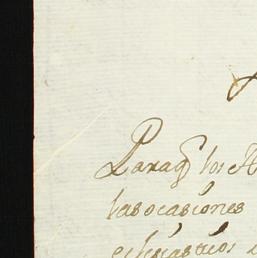 Paraq̃ los
las ocasiones
eclesiasticos